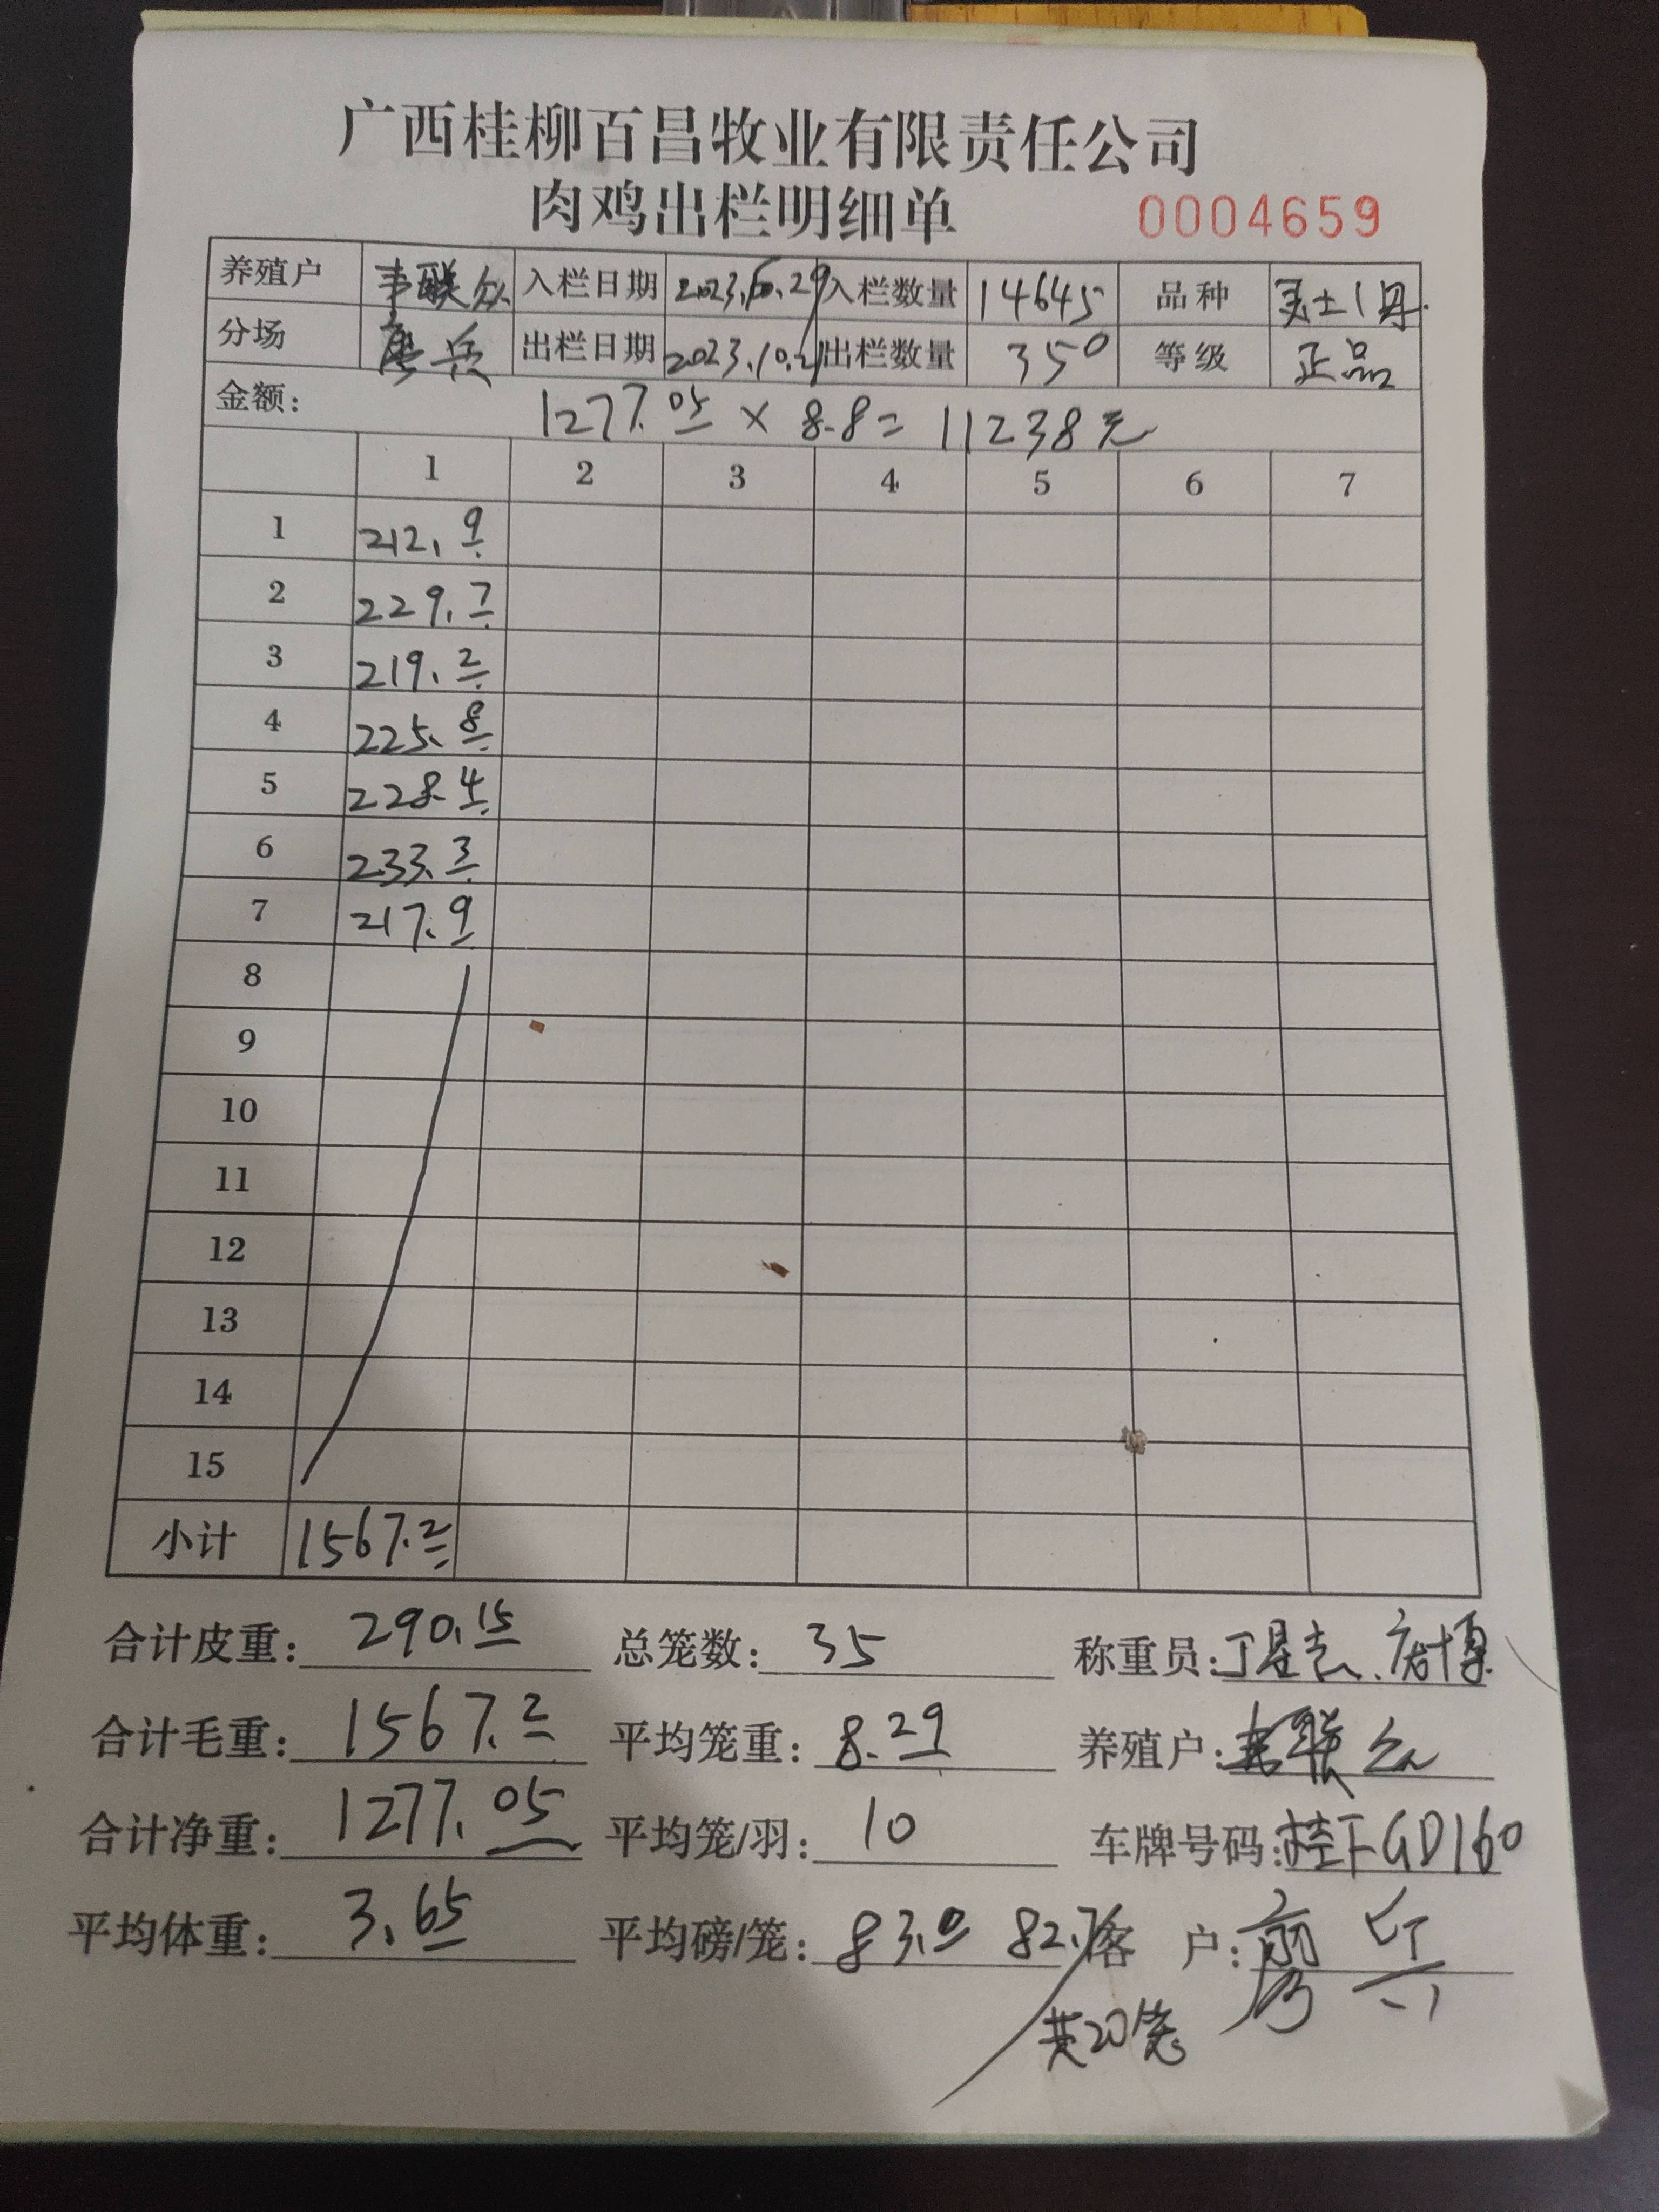 广西桂柳百昌牧业有限责任公司
肉鸡出栏明细单 0004659
养殖户 韦联众 入栏日期 2023.6.29 入栏数量 14645 品种
分场 唐兵 出栏日期 2023.10.21 出栏数量 350 等级 正品
金额: 1277.05 × 8.8 = 11238元
1 2 3 4 5 6 7
1 212.9
2 229.7
3 219.2
4 225.8
5 228.4
6 233.3
7 217.9
8
9
10
11
12
13
14
15
小计 1567.2
合计皮重: 290.15 总笼数: 35 称重员:
合计毛重: 1567.2 平均笼重: 8.29 养殖户: 韦联众
合计净重: 1277.05 平均笼/羽: 10 车牌号码: GD160
平均体重: 3.65 平均磅/笼: 83.0 82.7 客户: 廖兵
共20笼